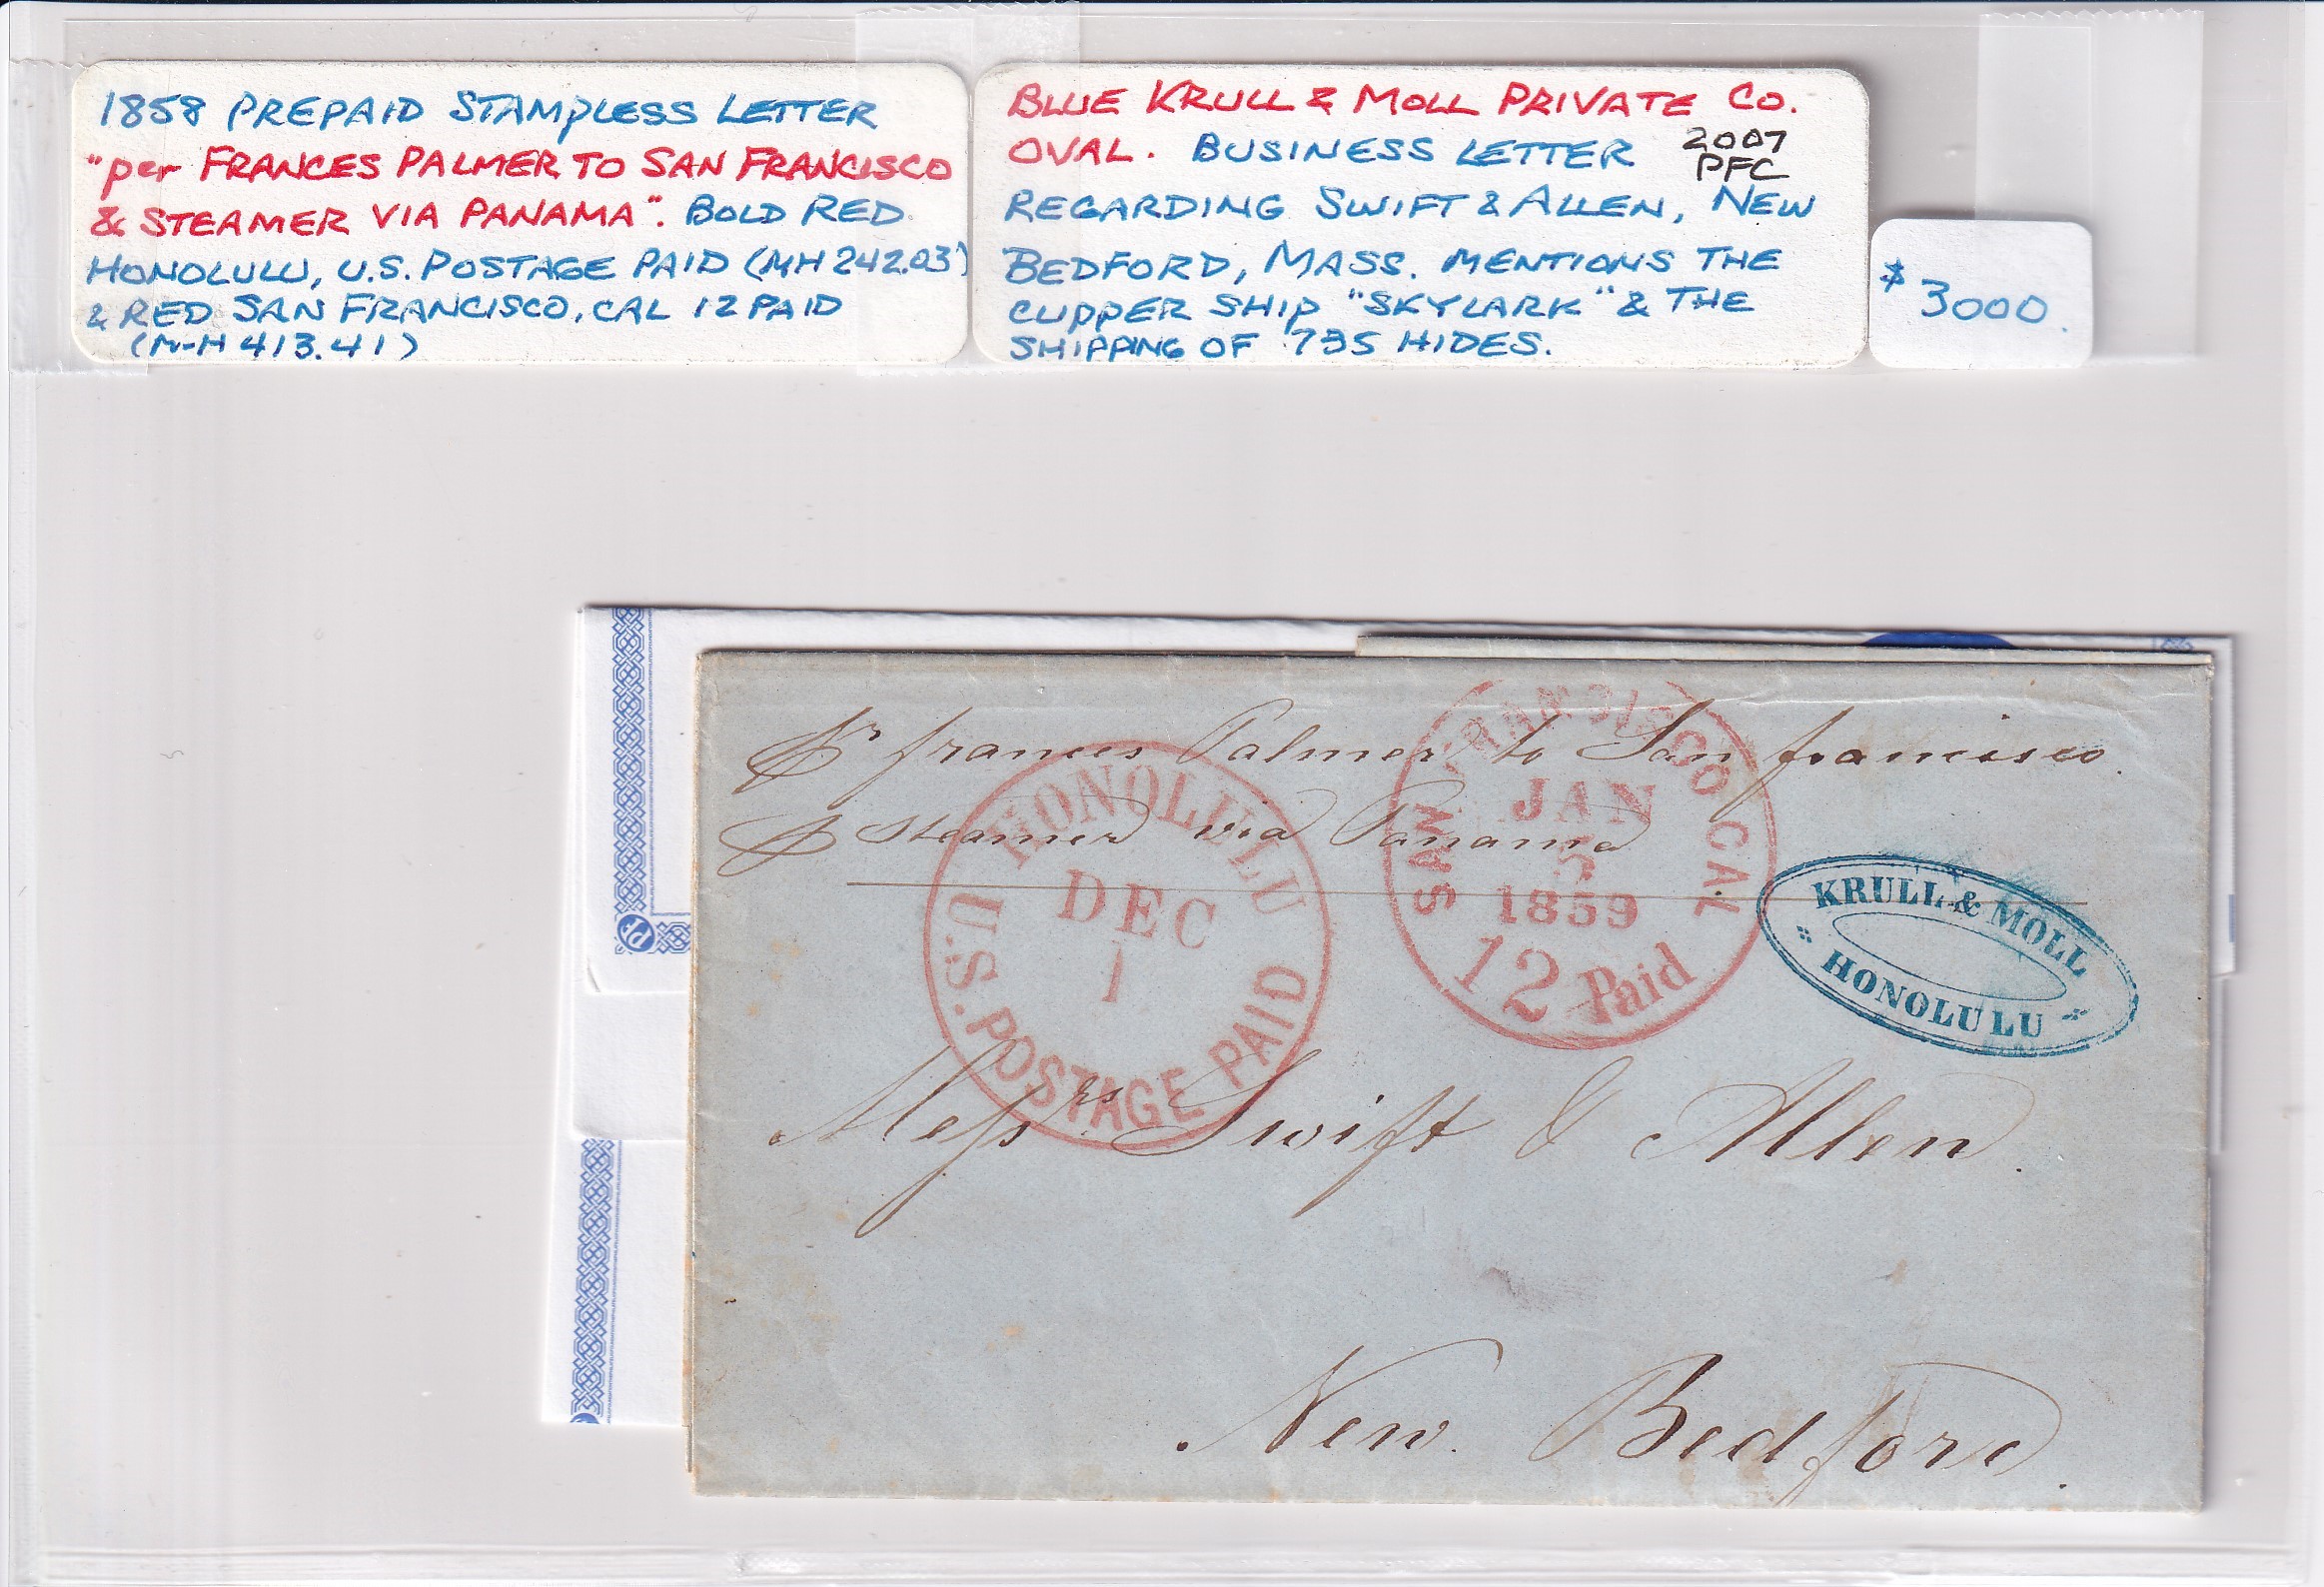 1858 PREPAID STAMPLESS LETTER
"per FRANCES PALMER TO SAN FRANCISCO
& STEAMER VIA PANAMA". BOLD RED
HONOLULU, U.S. POSTAGE PAID (MH 242.03)
& RED SAN FRANCISCO, CAL 12 PAID
(M-H 413.41)
BLUE KRULL & MOLL PRIVATE CO.
OVAL. BUSINESS LETTER 2007 PFC
REGARDING SWIFT & ALLEN, NEW
BEDFORD, MASS. MENTIONS THE
CLIPPER SHIP "SKYLARK" & THE
SHIPPING OF 735 HIDES.
$3000.
pr frances Palmer to San francisco.
p Steamer via Panama
HONOLULU
DEC
1
U.S. POSTAGE PAID
SAN FRANCISCO CAL
JAN
5
1859
12 Paid
KRULL & MOLL
HONOLULU
Messrs Swift & Allen.
New. Bedford.
PF